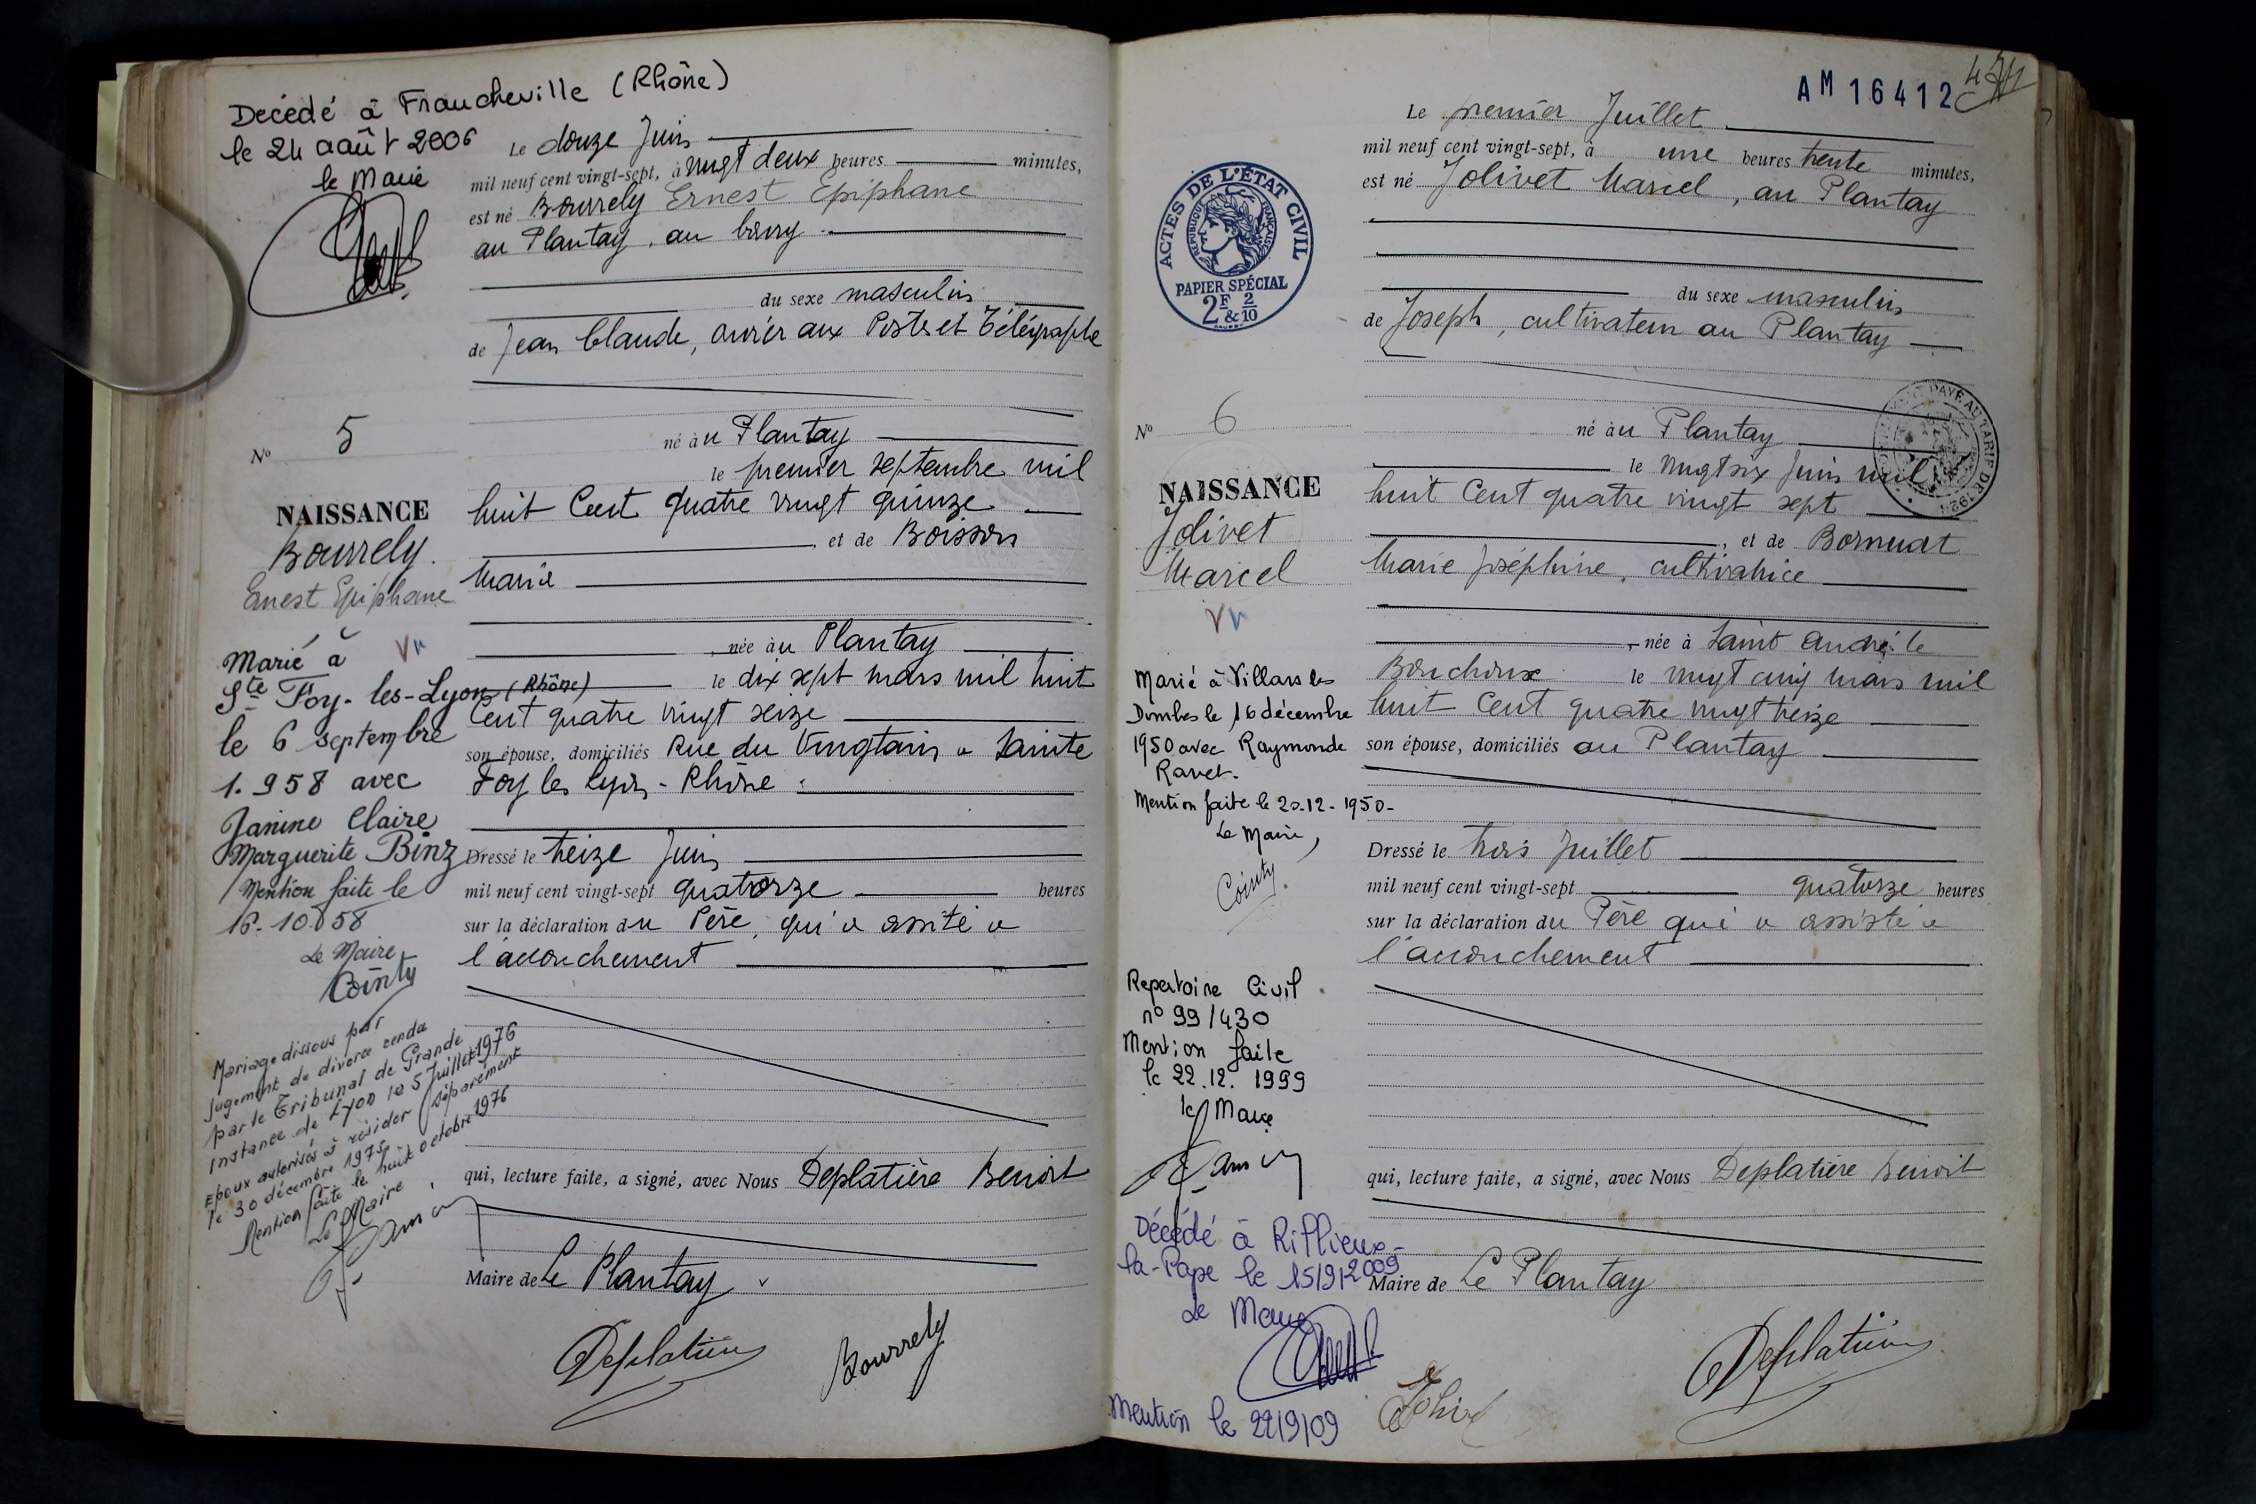 Decédé à Francheville (Rhône)
le 24 août 2006
le Maire
Le douze Juin
mil neuf cent vingt-sept, à vingt deux heures minutes,
est né Bourrely Ernest Epiphane
au Plantay, au bourg
du sexe masculin
de Jean Claude, ouvrier aux Postes et Télégraphe
né à u Plantay
le premier septembre mil
huit Cent quatre vingt quinze
, et de Boisson
Marie
, née à u Plantay
le dix sept mars mil huit
Cent quatre vingt seize
son épouse, domiciliés Rue du Vingtain a Sainte
Foy les Lyon - Rhône
Dressé le treize Juin
mil neuf cent vingt-sept quatorze heures
sur la déclaration du Père, qui a assité a
l'accouchement
qui, lecture faite, a signé, avec Nous Deplatière Benoit
Maire de Le Plantay
Deplatière
Bourrely
No 5
NAISSANCE
Bourrely.
Ernest Epiphane
Marié à
Ste Foy-les-Lyon (Rhône)
le 6 septembre
1.958 avec
Janine Claire
Marguerite Binz
Mention faite le
16-10-58
Le Maire
Cointy
Mariage dissous par
jugement de divorce rendu
par le Tribunal de Grande
Instance de Lyon le 5 Juillet 1976
Epoux autorisés à résider séparément
le 30 décembre 1975
Mention faite le huit octobre 1976
Le Maire
AM 16412
Le premier Juillet
mil neuf cent vingt-sept, à une heures trente minutes,
est né Jolivet Marcel, au Plantay
du sexe masculin
de Joseph, cultivateur au Plantay
né à u Plantay
le vingt six Juin mil
huit Cent quatre vingt sept
, et de Bornuat
Marie Joséphine, cultivatrice
, née à Saint André le
Bouchoux le vingt cinq mars mil
huit Cent quatre vingt treize
son épouse, domiciliés au Plantay
Dressé le trois Juillet
mil neuf cent vingt-sept quatorze heures
sur la déclaration du Père qui a assisté a
l'accouchement
qui, lecture faite, a signé, avec Nous Deplatière Benoit
Maire de Le Plantay
Deplatière
ACTES DE L'ÉTAT CIVIL
RÉPUBLIQUE FRANÇAISE
PAPIER SPÉCIAL
2F & 2/10
No 6
NAISSANCE
Jolivet
Marcel
Marié à Villars les
Dombes le 16 décembre
1950 avec Raymonde
Ravet.
Mention faite le 20-12-1950-
Le Maire,
Cointy.
Repertoire Civil
no 99/430
Mention faite
le 22.12.1999
le Maire
Décédé à Rillieux-
la-Pape le 15/9/2009
Le Maire
Mention le 22/9/09